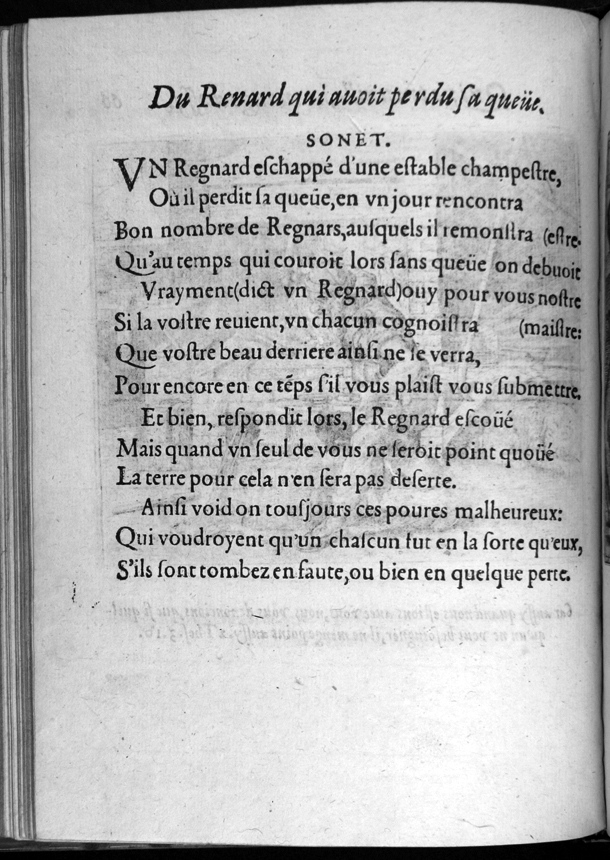 Du Renard qui auoit perdu ſa queüe.
SONET.
VN Regnard eſchappé d'une eſtable champeſtre,
Où il perdit ſa queüe, en vn jour rencontra
Bon nombre de Regnars, auſquels il remonſtra (eſtre.
Qu'au temps qui couroit lors ſans queüe on debuoit
Vrayment (dict vn Regnard) ouy pour vous noſtre
Si la voſtre reuient, vn chacun cognoiſtra (maiſtre:
Que voſtre beau derriere ainſi ne ſe verra,
Pour encore en ce tẽps s'il vous plaiſt vous ſubmettre.
Et bien, reſpondit lors, le Regnard eſcoüé
Mais quand vn ſeul de vous ne ſeroit point quoüé
La terre pour cela n'en ſera pas deſerte.
Ainſi void on touſjours ces poures malheureux:
Qui voudroyent qu'un chaſcun fut en la ſorte qu'eux,
S'ils ſont tombez en faute, ou bien en quelque perte.